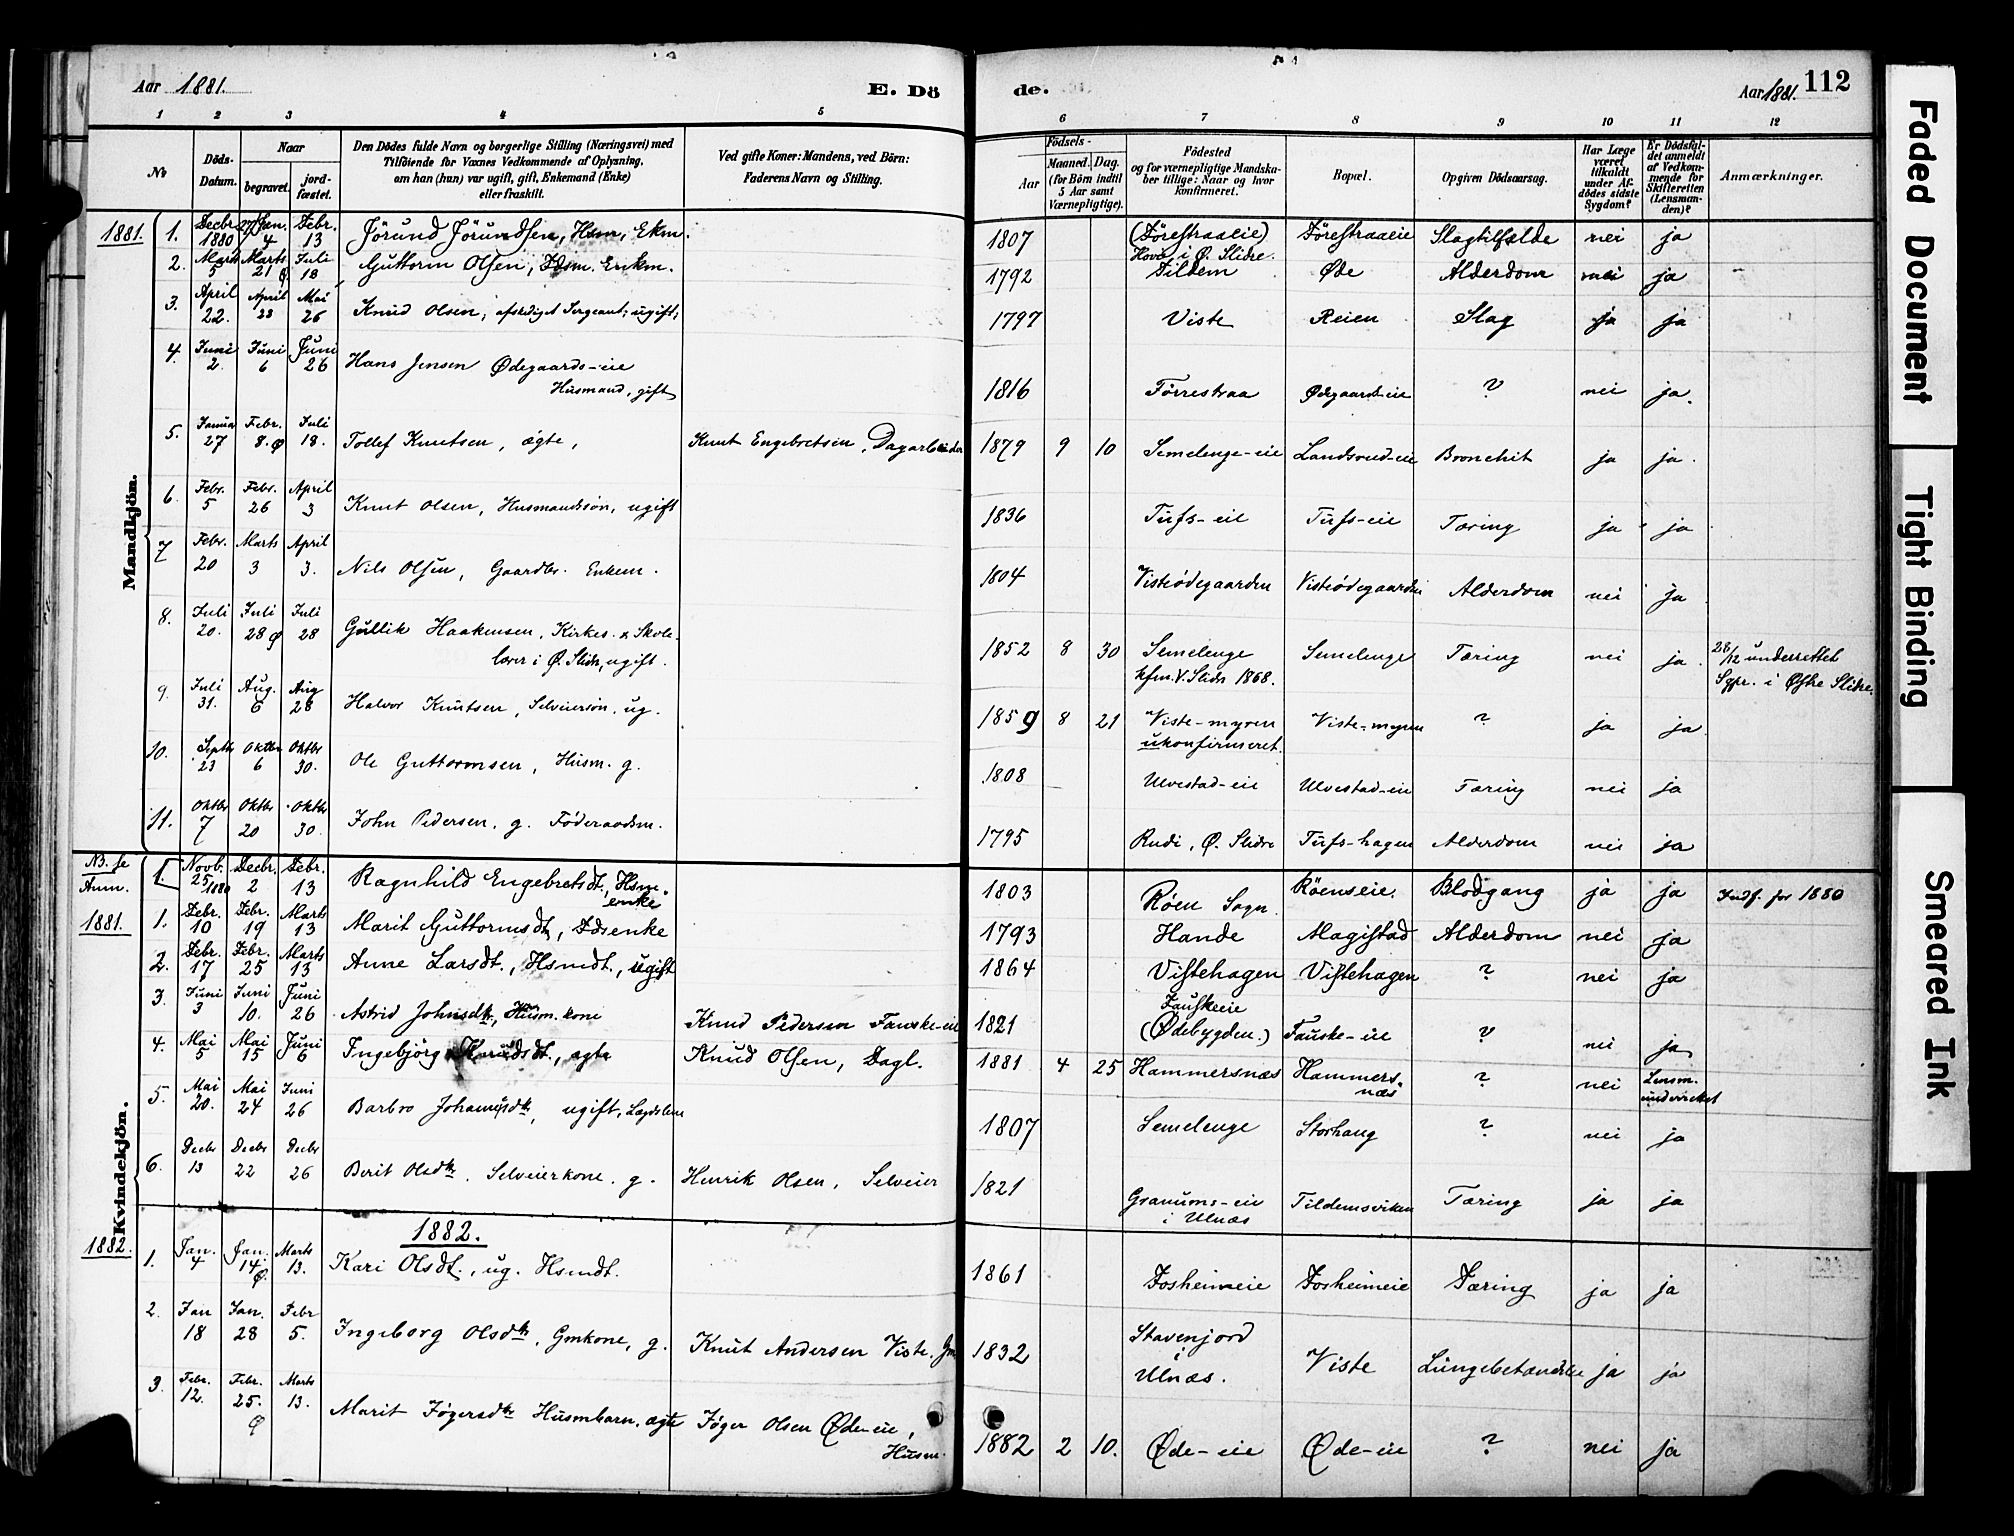 Aar 1881.
E. Dö
de.
Aar 1881. 112
1 2 3 4 5 6 7 8 9 10 11 12
No
Döds-Datum.
Naar
begravet.
jord-fæstet.
Den Dödes fulde Navn og borgerlige Stilling (Næringsvei) med
Tilföiende for Voxnes Vedkommende af Oplysning,
om han (hun) var ugift, gift, Enkemand (Enke)
eller fraskilt.
Ved gifte Koner: Mandens, ved Börn:
Faderens Navn og Stilling.
Födsels-
Aar
Maaned. Dag.
(for Börn indtil
5 Aar samt
Værnepligtige).
Födested
og for værnepligtige Mandska-
ber tillige: Naar og hvor
konfirmeret.
Bopæl.
Opgiven Dödsaarsag.
Har Læge
været
tilkaldt
under Af-
dödes sidste
Sygdom?
Er Dödsfal-
det anmeldt
af Vedkom-
mende for
Skifteretten
(Lensman-
den)?
Anmærkninger.
Mandkjön.
1881. 1. Decbr. 27 1880 Jan. 4 Febr. 13 Jörund Jörundsen, Hsm, Ekm. 1807 (Förestraaeie) Hovi, i Ø. Slidre. Förestraaeie Slagtilfælde nei ja
2. Marts 5 Marts 21 Ø Juli 18 Guttorm Olsen, Fdsm. Enkm. 1792 Tildem Øde Alderdom nei ja
3. April 22. April 28 Mai 26 Knud Olsen, afskediget Sergeant; ugift; 1797 Viste Reien Slag ja ja
4. Juni 2. Juni 6 Juni 26 Hans Jensen Ødegaards-eie
Husmand, gift 1816 Förrestraa Ødegaards-eie ? nei ja.
5. Januar 27 Febr. 8. Ø Juli 18. Tollef Knutsen, ægte, Knut Engebretsen, Dagarbeider 1879 9 10 Semelenge-eie Landsrud-eie Bronchit ja ja.
6. Febr. 5 Febr. 26 April 3 Knut Olsen, Husmandssön, ugift 1836 Tufs-eie Tufs-eie Tæring ja ja
7 Febr. 20 Marts 3 April 3. Nils Olsen, Gaardbr. Enkem. 1804 Visteödegaarden Visteödegaarden Alderdom nei ja
8. Juli 20. Juli 28 Ø Juli 28 Gullik Haakensen, Kirkes. & Skole-
lærer i Ø. Slidre, ugift. 1852 8 30 Semelenge
kfm. V. Slidre 1868. Semelenge Tæring nei ja. 28/12 underrettet
Sgpr. i Østre Slidre.
9. Juli 31. Aug. 6 Aug 28 Halvor Knutsen, Selveiersön, ug. 1859 8 21 Viste-myren
ukonfirmeret. Viste-myren ? ja ja
10. Septbr 23 Oktbr 6 Oktbr 30. Ole Guttormsen, Husm. g. 1808 Ulvestad-eie Ulvestad-eie Tæring nei ja
11. Oktbr 7 Oktbr 20 Oktbr 30. John Pedersen, g. Föderaadsm. 1795 Rudi, Ø. Slidre Tufs-hagen Alderdom nei ja
Kvindekjön.
NB. se
Anm. 1. Novb. 25 1880 Decbr. 2 Febr. 13 Ragnhild Engebretsdt., Hsm.
enke 1803 Röen Sogn. Röenseie. Blodgang ja ja Indf. for 1880
1881. 1. Febr. 10 Febr. 19 Marts 13 Marit Guttormsdt, Fdsenke 1793 Hande Magistad Alderdom nei ja
2. Febr. 17 Febr. 25 Marts 13 Anne Larsdt., Hsmdt., ugift 1864 Vistehagen Vistehagen ? nei ja
3. Juni 3 Juni 10. Juni 26 Astrid Johnsdtr, Husm. kone Knud Pedersen Fauske-eie 1821 Fauskeie
(Ødebygden.) Fauske-eie ? nei ja
4. Mai 5 Mai 15 Juni 6 Ingebjörg Knudsdt., ægte Knud Olsen, Dagl. 1881 4 25 Hammersnæs Hammers-
næs ? nei Lensm.
underrettet
5. Mai 20. Mai 24 Juni 26 Barbro Johannisdtr, ugift, Lægdslem 1807 Semelenge Storhaug ? nei ja
6. Decbr 13 Decbr 22 Decbr 26 Berit Olsdtr. Selveierkone. g. Henrik Olsen, Selveier 1821 Granums-eie
i Ulnæs Tildemsviken Tæring ja ja
1882.
1882. 1. Jan. 4 Jan. 14 Ø. Marts 13. Kari Olsdt., ug. Hsmdt. 1861 Fosheimeie Fosheimeie Tæring ja ja
2. Jan 18 Jan. 28 Febr 5. Ingeborg Olsdtr, Gmkone, g. Knut Andersen Viste, Gm 1832 Stavenjord
i
Ulnæs. Viste Lungebetændelse ja ja
3. Febr. 12. Febr. 25. Ø Marts 13. Marit Jögersdtr Husmbarn. ægte Jöger Olsen Øde-eie,
Husm. 1882 2 10. Øde-eie Øde-eie ? nei ja
Faded Document
Tight Binding
Smeared Ink